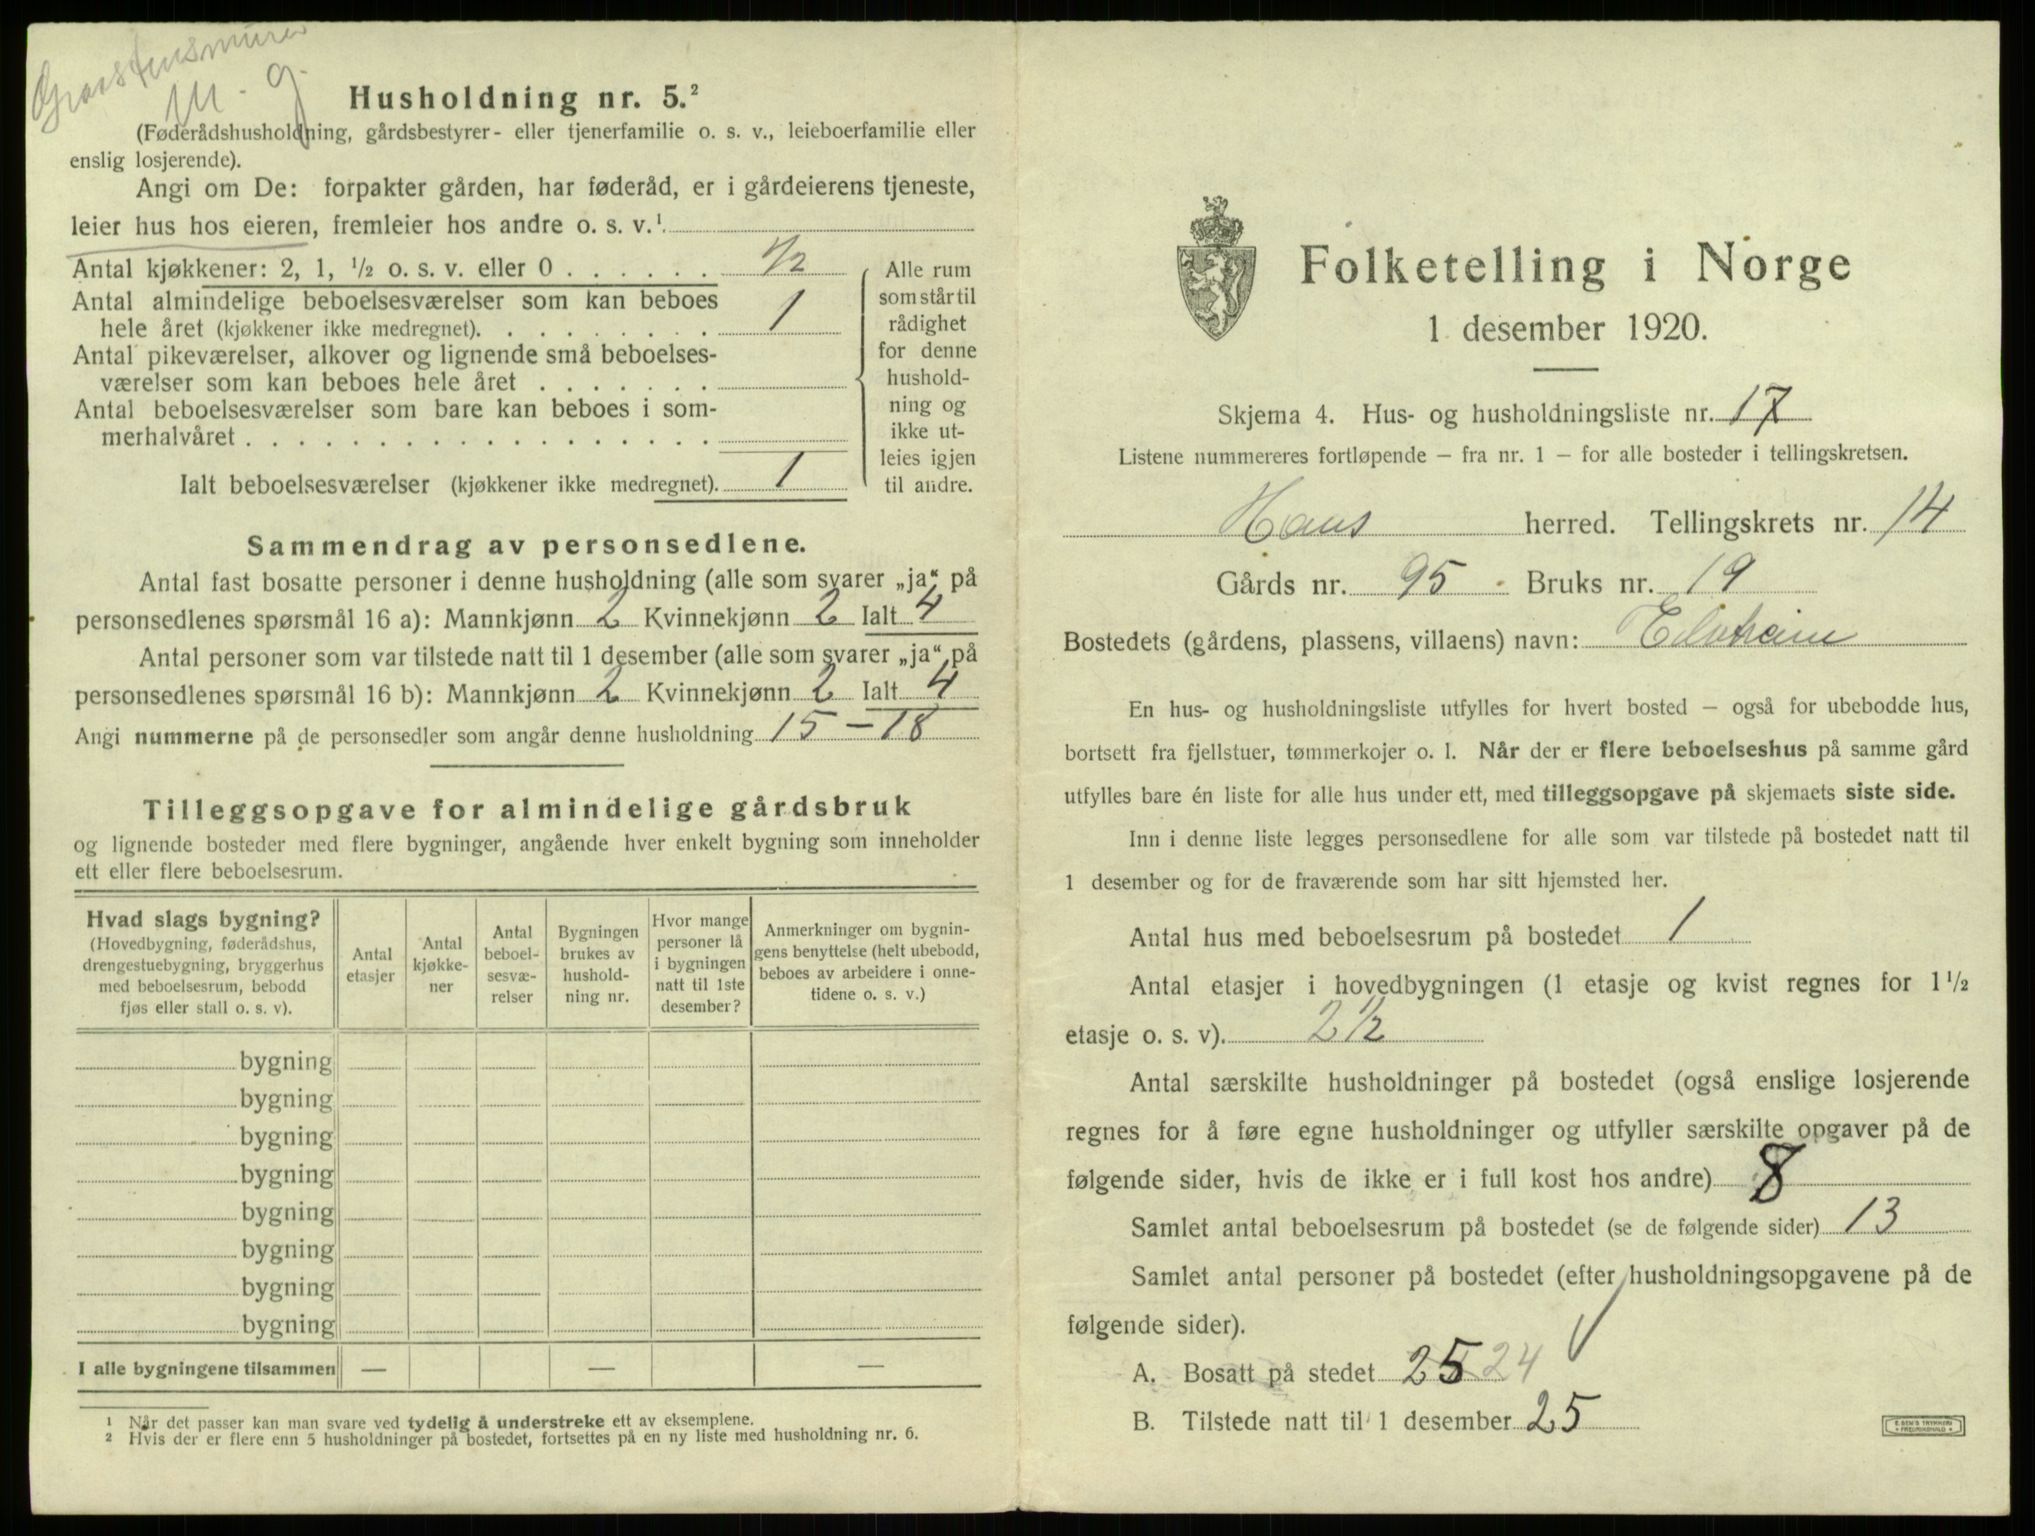 m. g.
Husholdning nr. 5.²
(Føderådshusholdning, gårdsbestyrer- eller tjenerfamilie o. s. v., leieboerfamilie eller
enslig losjerende).
Angi om De: forpakter gården, har føderåd, er i gårdeierens tjeneste,
leier hus hos eieren, fremleier hos andre o. s. v.¹
Antal kjøkkener: 2, 1, ½ o. s. v. eller 0 . . . . . . ½
Antal almindelige beboelsesværelser som kan beboes
hele året (kjøkkener ikke medregnet). . . . . . . . . 1
Antal pikeværelser, alkover og lignende små beboelses-
værelser som kan beboes hele året . . . . . . .
Antal beboelsesværelser som bare kan beboes i som-
merhalvåret . . . . . . . . . . . . . . . . . .
Ialt beboelsesværelser (kjøkkener ikke medregnet). 1
Alle rum
som står til
rådighet
for denne
hushold-
ning og
ikke ut-
leies igjen
til andre.
Sammendrag av personsedlene.
Antal fast bosatte personer i denne husholdning (alle som svarer „ja“ på
personsedlenes spørsmål 16 a): Mannkjønn 2 Kvinnekjønn 2 Ialt 4
Antal personer som var tilstede natt til 1 desember (alle som svarer „ja“ på
personsedlenes spørsmål 16 b): Mannkjønn 2 Kvinnekjønn 2 Ialt 4
Angi nummerne på de personsedler som angår denne husholdning 15 – 18
Tilleggsopgave for almindelige gårdsbruk
og lignende bosteder med flere bygninger, angående hver enkelt bygning som inneholder
ett eller flere beboelsesrum.
Hvad slags bygning?
(Hovedbygning, føderådshus,
drengestuebygning, bryggerhus
med beboelsesrum, bebodd
fjøs eller stall o. s. v).
Antal
etasjer
Antal
kjøkke-
ner
Antal
beboel-
sesvæ-
relser
Bygningen
brukes av
hushold-
ning nr.
Hvor mange
personer lå
i bygningen
natt til 1ste
desember?
Anmerkninger om bygnin-
gens benyttelse (helt ubebodd,
beboes av arbeidere i onne-
tidene o. s. v.)
bygning
bygning
bygning
bygning
bygning
bygning
bygning
bygning
I alle bygningene tilsammen — — —
¹ Når det passer kan man svare ved tydelig å understreke ett av eksemplene.
² Hvis der er flere enn 5 husholdninger på bostedet, fortsettes på en ny liste med husholdning nr. 6.
Folketelling i Norge
1 desember 1920.
Skjema 4. Hus- og husholdningsliste nr. 17
Listene nummereres fortløpende – fra nr. 1 – for alle bosteder i tellingskretsen.
Haus herred. Tellingskrets nr. 14
Gårds nr. 95 Bruks nr. 19
Bostedets (gårdens, plassens, villaens) navn:
En hus- og husholdningsliste utfylles for hvert bosted – også for ubebodde hus,
bortsett fra fjellstuer, tømmerkojer o. l. Når der er flere beboelseshus på samme gård
utfylles bare én liste for alle hus under ett, med tilleggsopgave på skjemaets siste side.
Inn i denne liste legges personsedlene for alle som var tilstede på bostedet natt til
1 desember og for de fraværende som har sitt hjemsted her.
Antal hus med beboelsesrum på bostedet 1
Antal etasjer i hovedbygningen (1 etasje og kvist regnes for 1½
etasje o. s. v). 2½
Antal særskilte husholdninger på bostedet (også enslige losjerende
regnes for å føre egne husholdninger og utfyller særskilte opgaver på de
følgende sider, hvis de ikke er i full kost hos andre) 8
Samlet antal beboelsesrum på bostedet (se de følgende sider) 13
Samlet antal personer på bostedet (efter husholdningsopgavene på de
følgende sider).
A. Bosatt på stedet 25 24
B. Tilstede natt til 1 desember 25